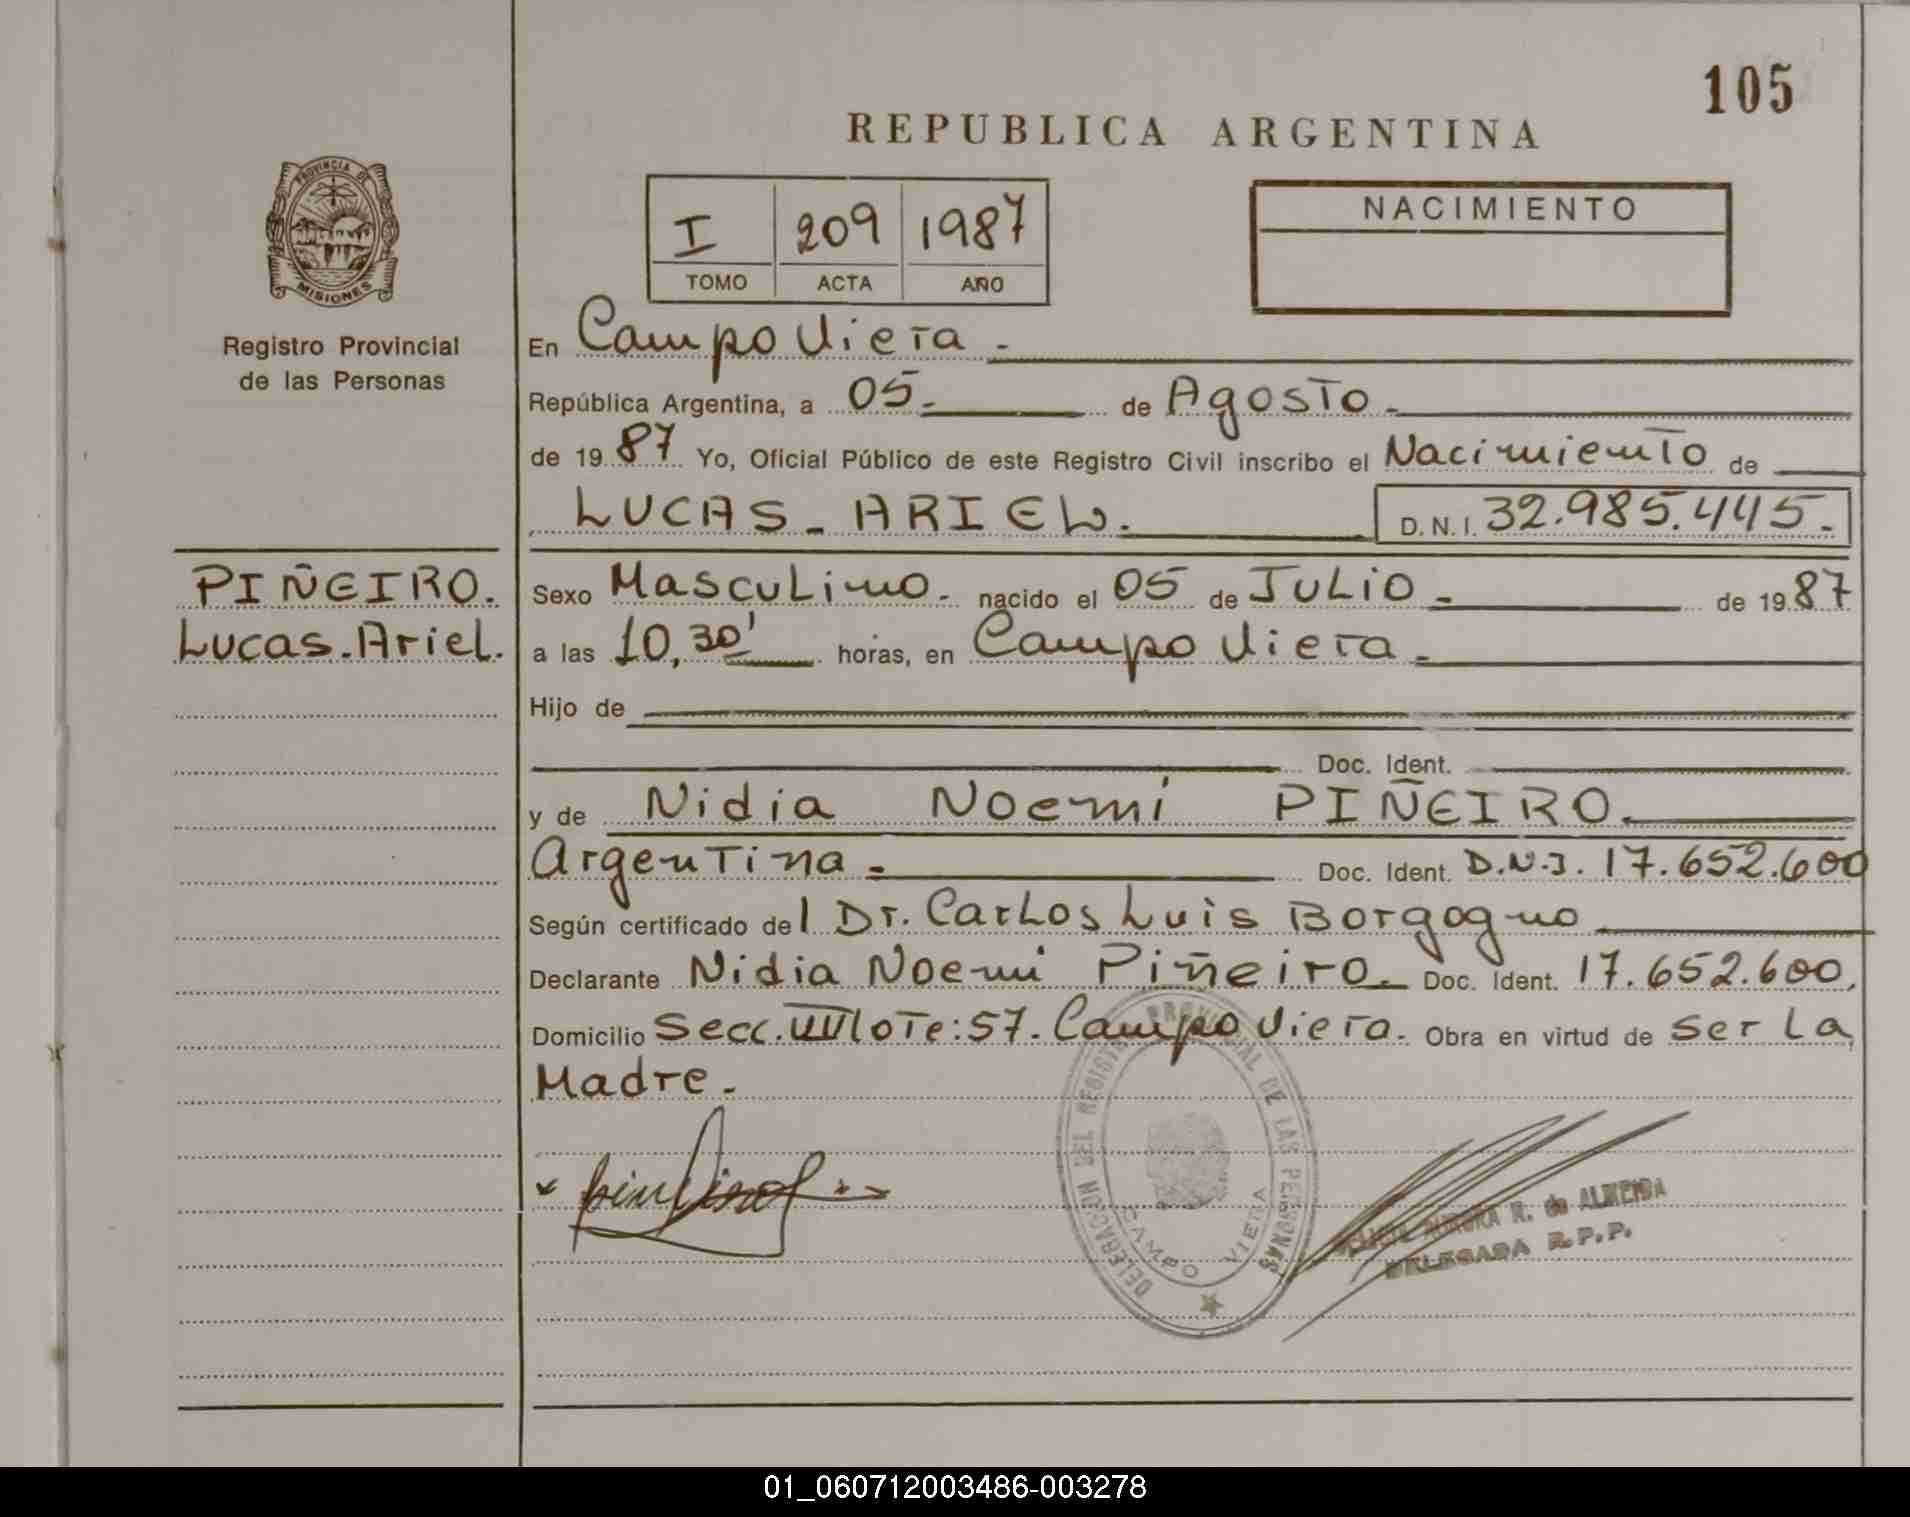 105
REPUBLICA ARGENTINA
PROVINCIA DE
MISIONES
Registro Provincial
de las Personas
I 209 1987
TOMO ACTA AÑO
NACIMIENTO
En Campo Viera -
República Argentina, a 05. de Agosto.
de 1987 Yo, Oficial Público de este Registro Civil inscribo el Nacimiento de
LUCAS - ARIEL. D.N.I. 32.985.445.
PIÑEIRO.
Lucas. Ariel.
Sexo Masculino. nacido el 05 de JULIO - de 1987
a las 10,30' horas, en Campo Viera.
Hijo de
Doc. Ident.
y de Nidia Noemi PIÑEIRO.
Argentina. Doc. Ident. D.N.I. 17.652.600
Según certificado del Dr. Carlos Luis Borgogno
Declarante Nidia Noemi Piñeiro. Doc. Ident. 17.652.600,
Domicilio Secc. VII Lote: 57. Campo Viera. Obra en virtud de ser La
Madre.
DELEGACION DEL REGISTRO PROVINCIAL DE LAS PERSONAS
CAMPO VIERA
AURORA R. de ALMEIDA
DELEGADA R.P.P.
01_060712003486-003278